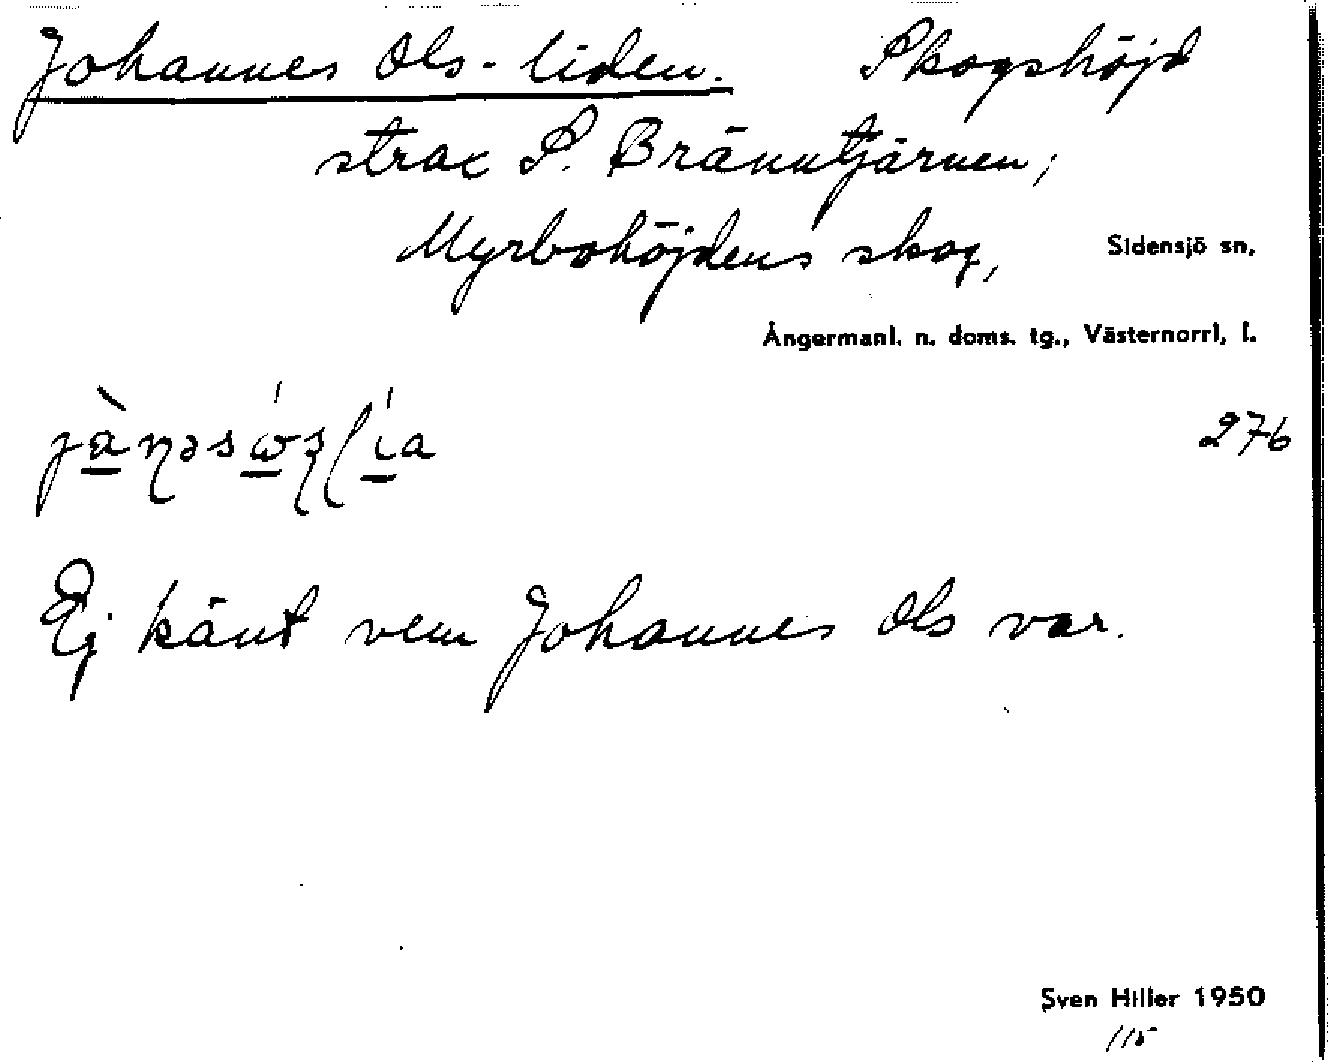 Johannes Ols-liden. Skogshöjd
strax S. Bränntjärnen;
Myrbohöjdens skog, Sidensjö sn,
Ångermanl. n. doms. tg., Västernorrl, l.
276
Ej känt vem Johannes Ols var.
Sven Hiller 1950
115